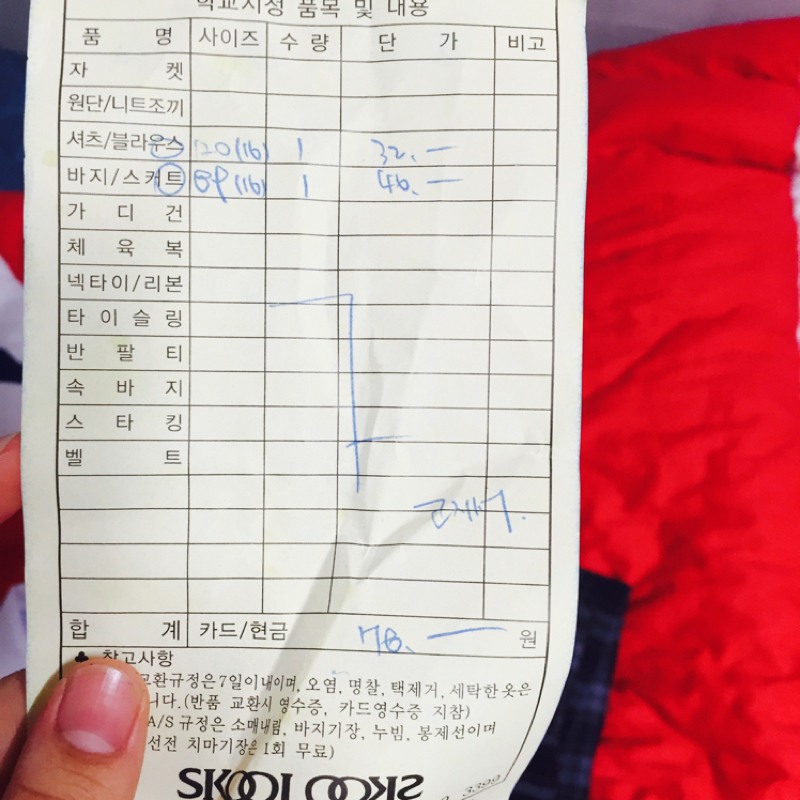 학교지정 품목 및 내용
품 명 사이즈 수 량 단 가 비고
자 켓
원단/니트조끼
셔츠/블라우스 120(16) 1 32.—
바지/스커트 89(16) 1 46.—
가 디 건
체 육 복
넥타이/리본
타 이 슬 링
반 팔 티
속 바 지
스 타 킹
벨 트
합 계 카드/현금 78.— 원
참고사항
교환규정은 7일이내이며, 오염, 명찰, 택제거, 세탁한 옷은
니다.(반품 교환시 영수증, 카드영수증 지참)
A/S 규정은 소매내림, 바지기장, 누빔, 봉제선이며
선전 치마기장은 1회 무료)
SKOOLOOKS
3399